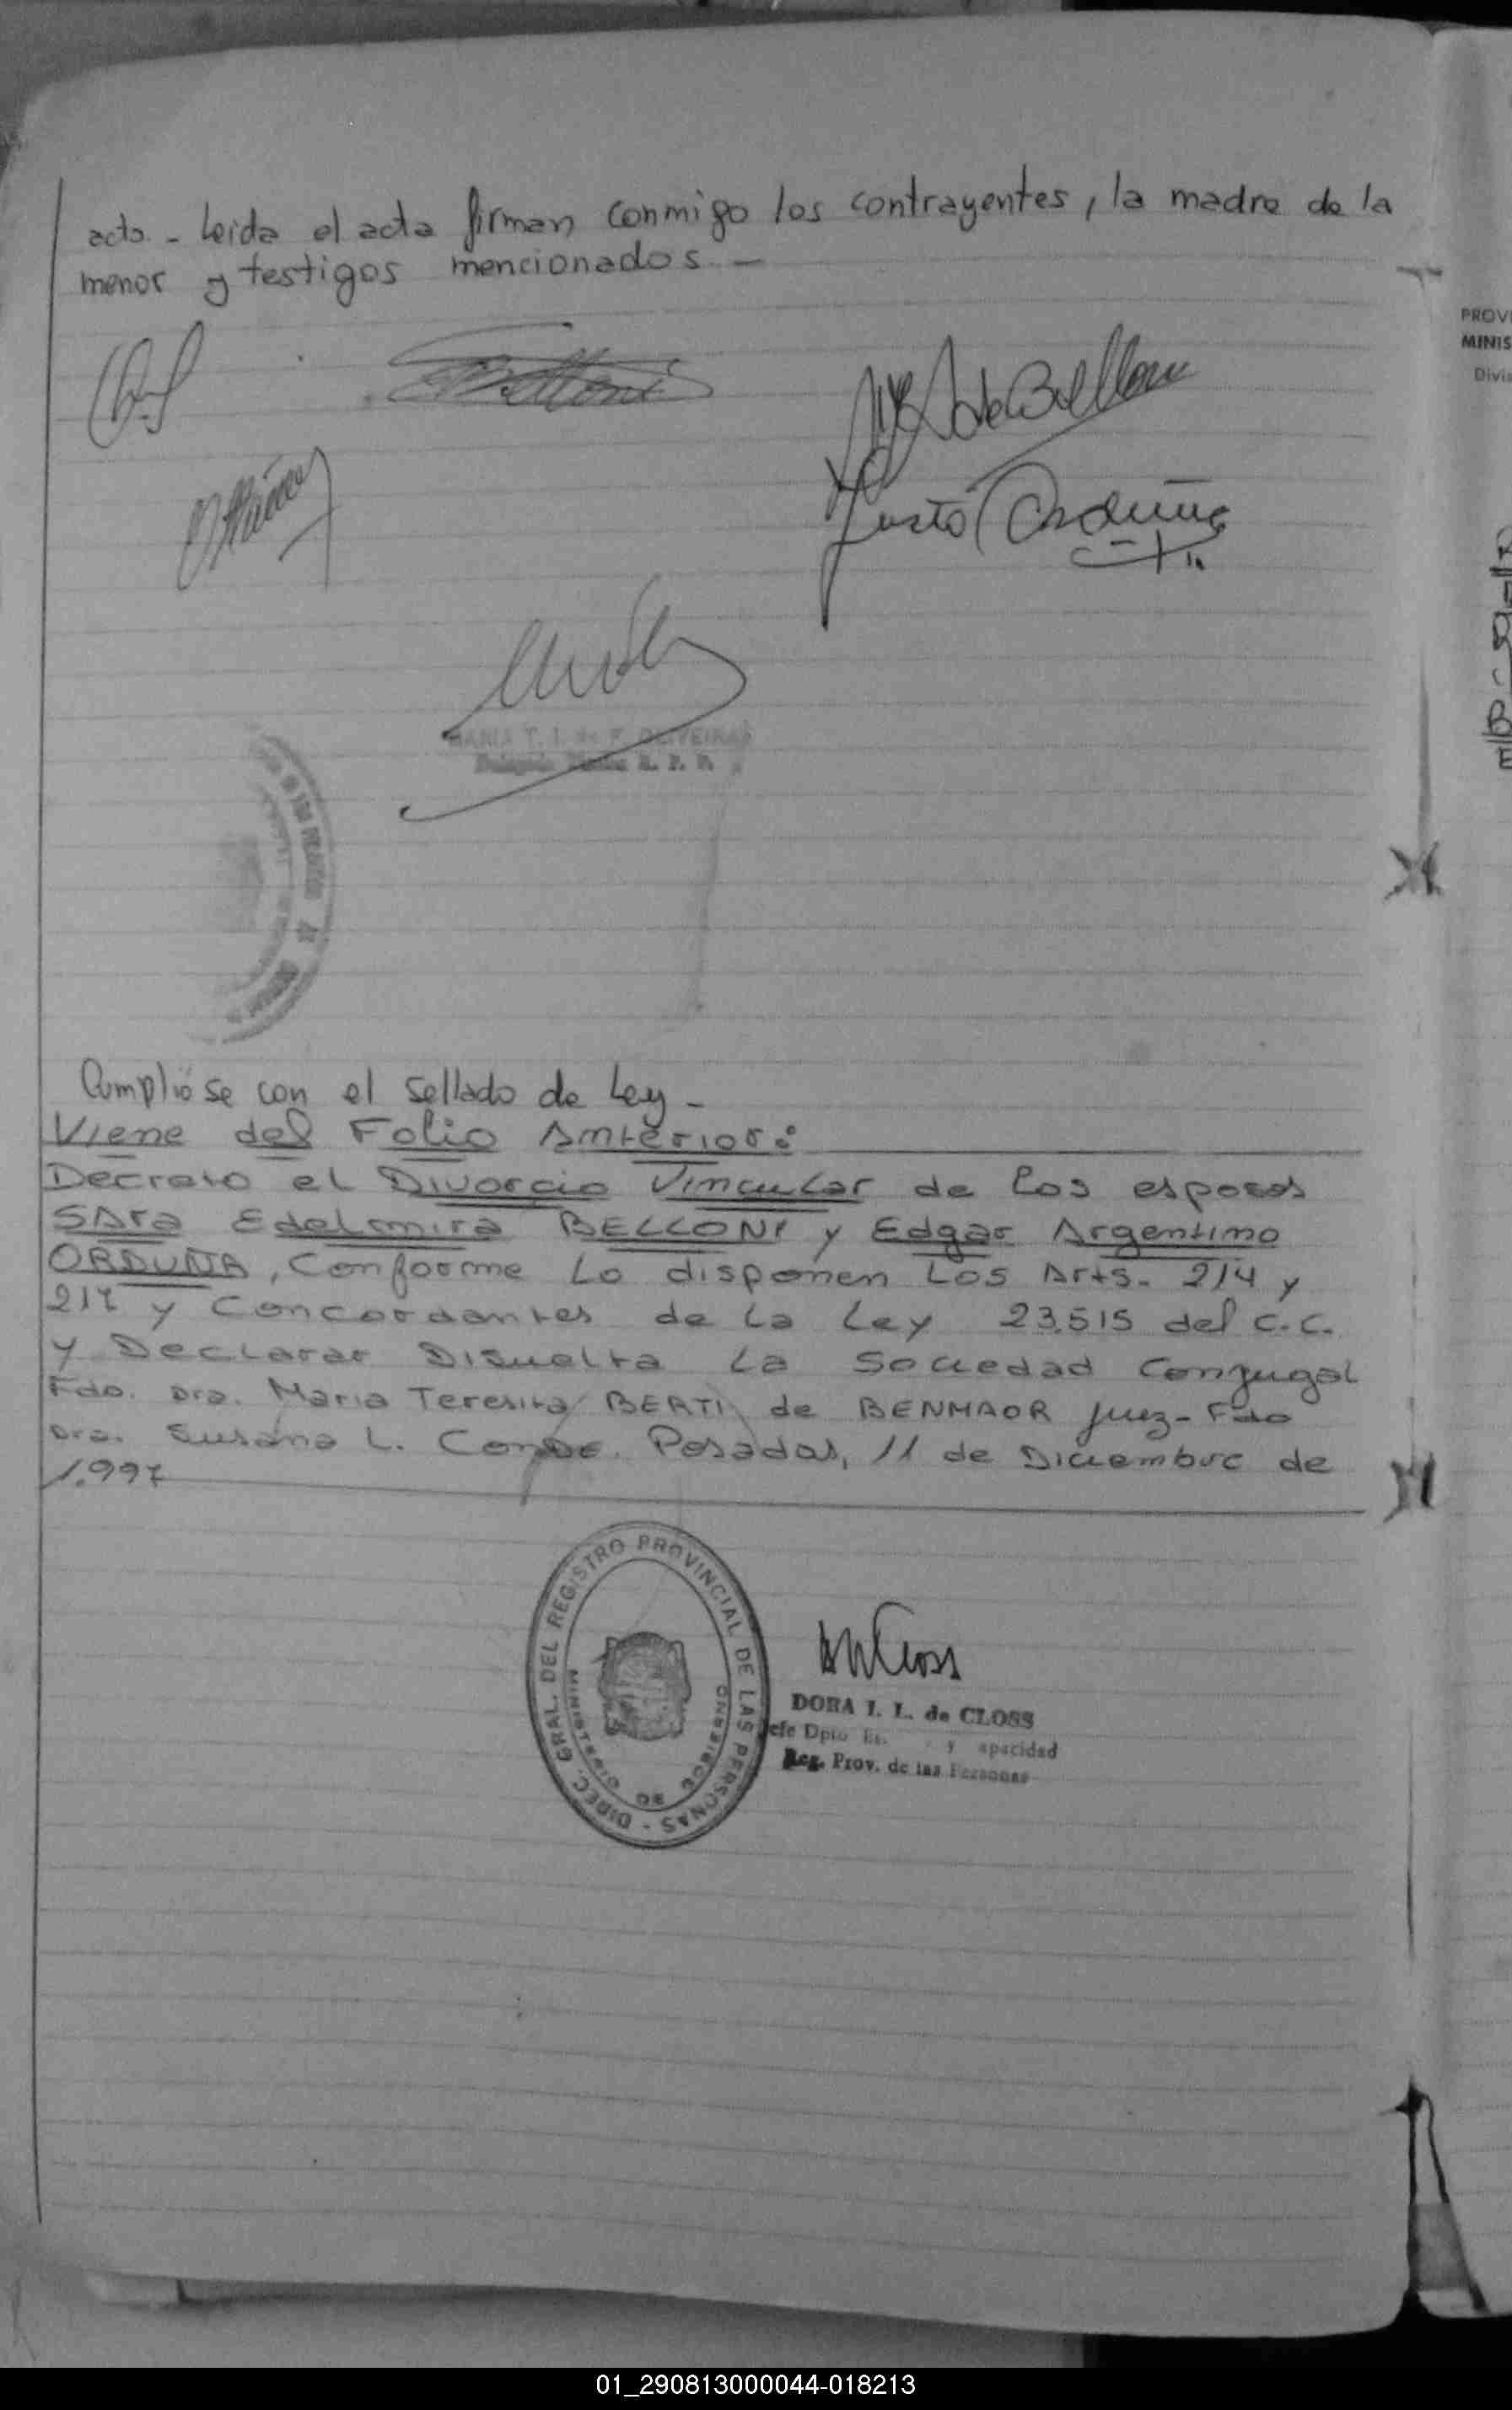 acto.- Leida el acta firman conmigo los contrayentes, la madre de la
menor y testigos mencionados.-
Belloni
de Belloni
Justo Orduña
MARIA T. I. de F. OLIVEIRA
R. P. P.
Cumplióse con el sellado de Ley-
Viene del Folio Anterior:
Decreto el Divorcio Vincular de Los esposos
SARA Edelmira BELLONI y Edgar Argentino
ORDUÑA, Conforme Lo disponen Los Arts. 214 y
217 y Concordantes de La Ley 23.515 del C.C.
y Declarar Disuelta La Sociedad Conyugal
Fdo. Dra. Maria Teresita BERTI de BENMAOR Juez- Fdo
Dra. Susana L. Conde. Posadas, 11 de Diciembre de
1.997
DIREC. GRAL. DEL REGISTRO PROVINCIAL DE LAS PERSONAS -
MINISTERIO DE GOBIERNO
DORA I. L. de CLOSS
efe Dpto y apacidad
Reg. Prov. de las Personas
PROVI
MINIS
Divis
01_290813000044-018213